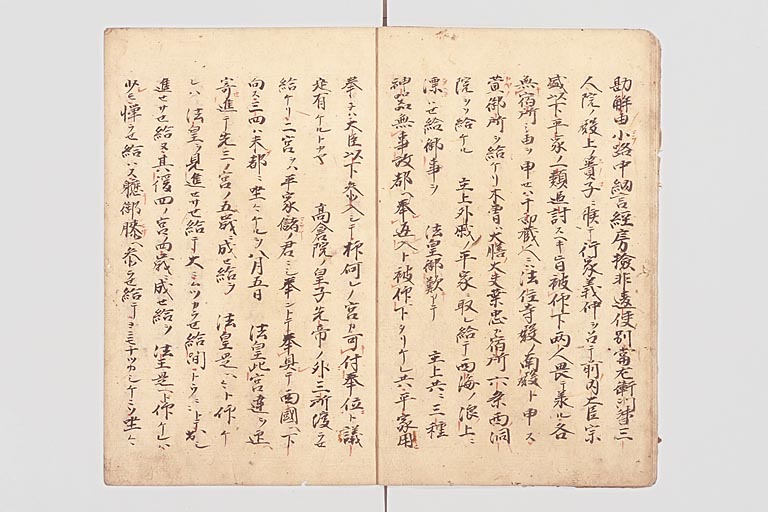 勘解由小路中納言経房検非違使別當左衛門督三
人院ノ殿上ノ簀子ニ候テ行家義仲ヲ召テ前内大臣宗
盛以下平家ノ類追討スヘキ旨被仰下両人畏テ承ル各
無宿所ノ由ヲ申セハ十郎蔵人ニハ法住寺殿ノ南殿ト申ス
萱御所ヲ給ケリ木曽ハ大膳大夫業忠カ宿所六条西洞
院ヲソ給ケル 主上外戚ノ平家ニ取レ給テ西海ノ浪上ニ
漂ハセ給御事ヲ 法皇御歎アリテ 主上并三種
神器無事故都ヘ奉返入ト被仰下タリケレ共平家用
奉ラネハ大臣以下参入シテ抑何レノ宮カ可付奉位ト議
定有ケルトカヤ 高倉院ノ皇子先帝ノ外三所渡ラセ
給ケリ二宮ヲハ平家儲ノ君ニシ奉ントテ奉具テ西國ヘ下
向ス三四ハ未都ニ坐ケルヲ八月五日 法皇此宮達ヲ迎
寄進テ先三ノ宮ノ五歳ニ成セ給ヲ 法皇是ヘト仰ケ
レハ 法皇ヲ見進ラセサセ給テ大ニムツカラセ給間トウトウトテ出シ
進ラセサセ給又其後四ノ宮四歳ニ成セ給ヲ 法王是ヘト仰ケレハ
少モ憚ラセ給ハス軈御膝ヘ参ラセ給テヨニモナツカシケニソ坐ケ